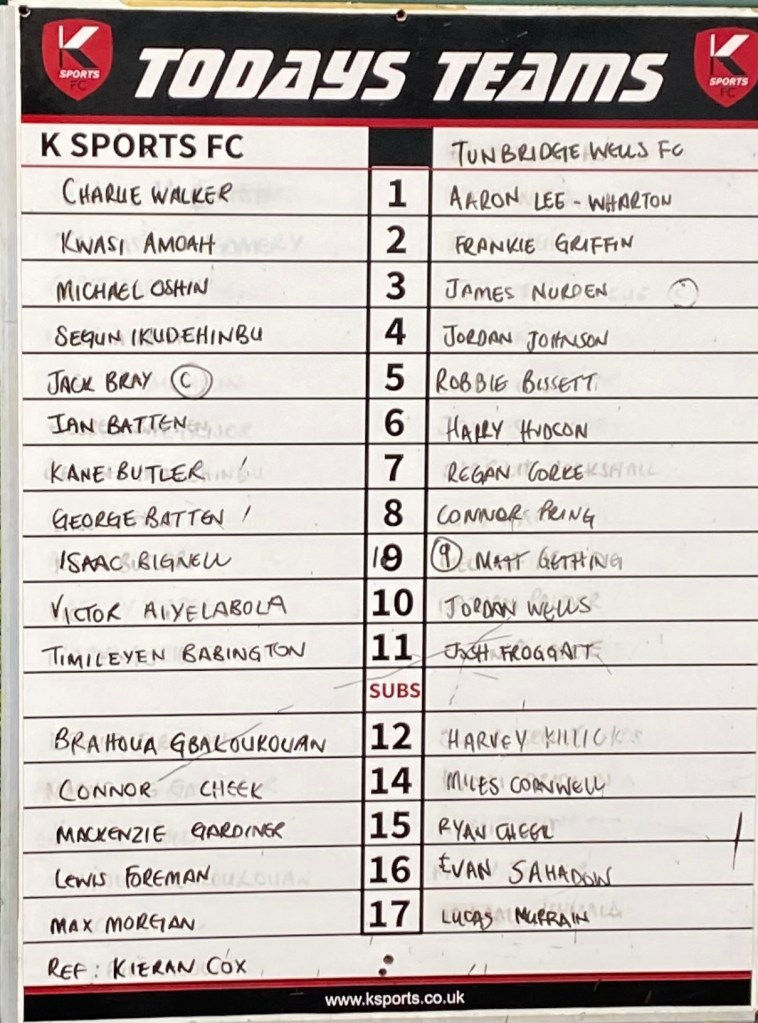 K SPORTS FC TODAYS TEAMS K SPORTS FC
K SPORTS FC TUNBRIDGE WELLS FC
CHARLIE WALKER 1 AARON LEE - WHARTON
KWASI AMOAH 2 FRANKIE GRIFFIN
MICHAEL OSHIN 3 JAMES NURDEN
SEGUN IKUDEHINBU 4 JORDAN JOHNSON
JACK BRAY (C) 5 ROBBIE BISSETT
IAN BATTEN 6 HARRY HUDSON
KANE BUTLER 7 REGAN CORKE
GEORGE BATTEN 8 CONNOR PRING
ISAAC BIGNELL 19 (9) MATT GETHING
VICTOR AIYELABOLA 10 JORDAN WELLS
TIMILEYEN BABINGTON 11 JOSH FROGGATT
SUBS
BRAHOUA GBALOUKOUAN 12 HARVEY
CONNOR CHEEK 14 MILES CORNWELL
MACKENZIE GARDINER 15 RYAN CHEEK
LEWIS FOREMAN 16 EVAN SAHADOW
MAX MORGAN 17 LUCAS MURRAIN
REF : KIERAN COX
www.ksports.co.uk